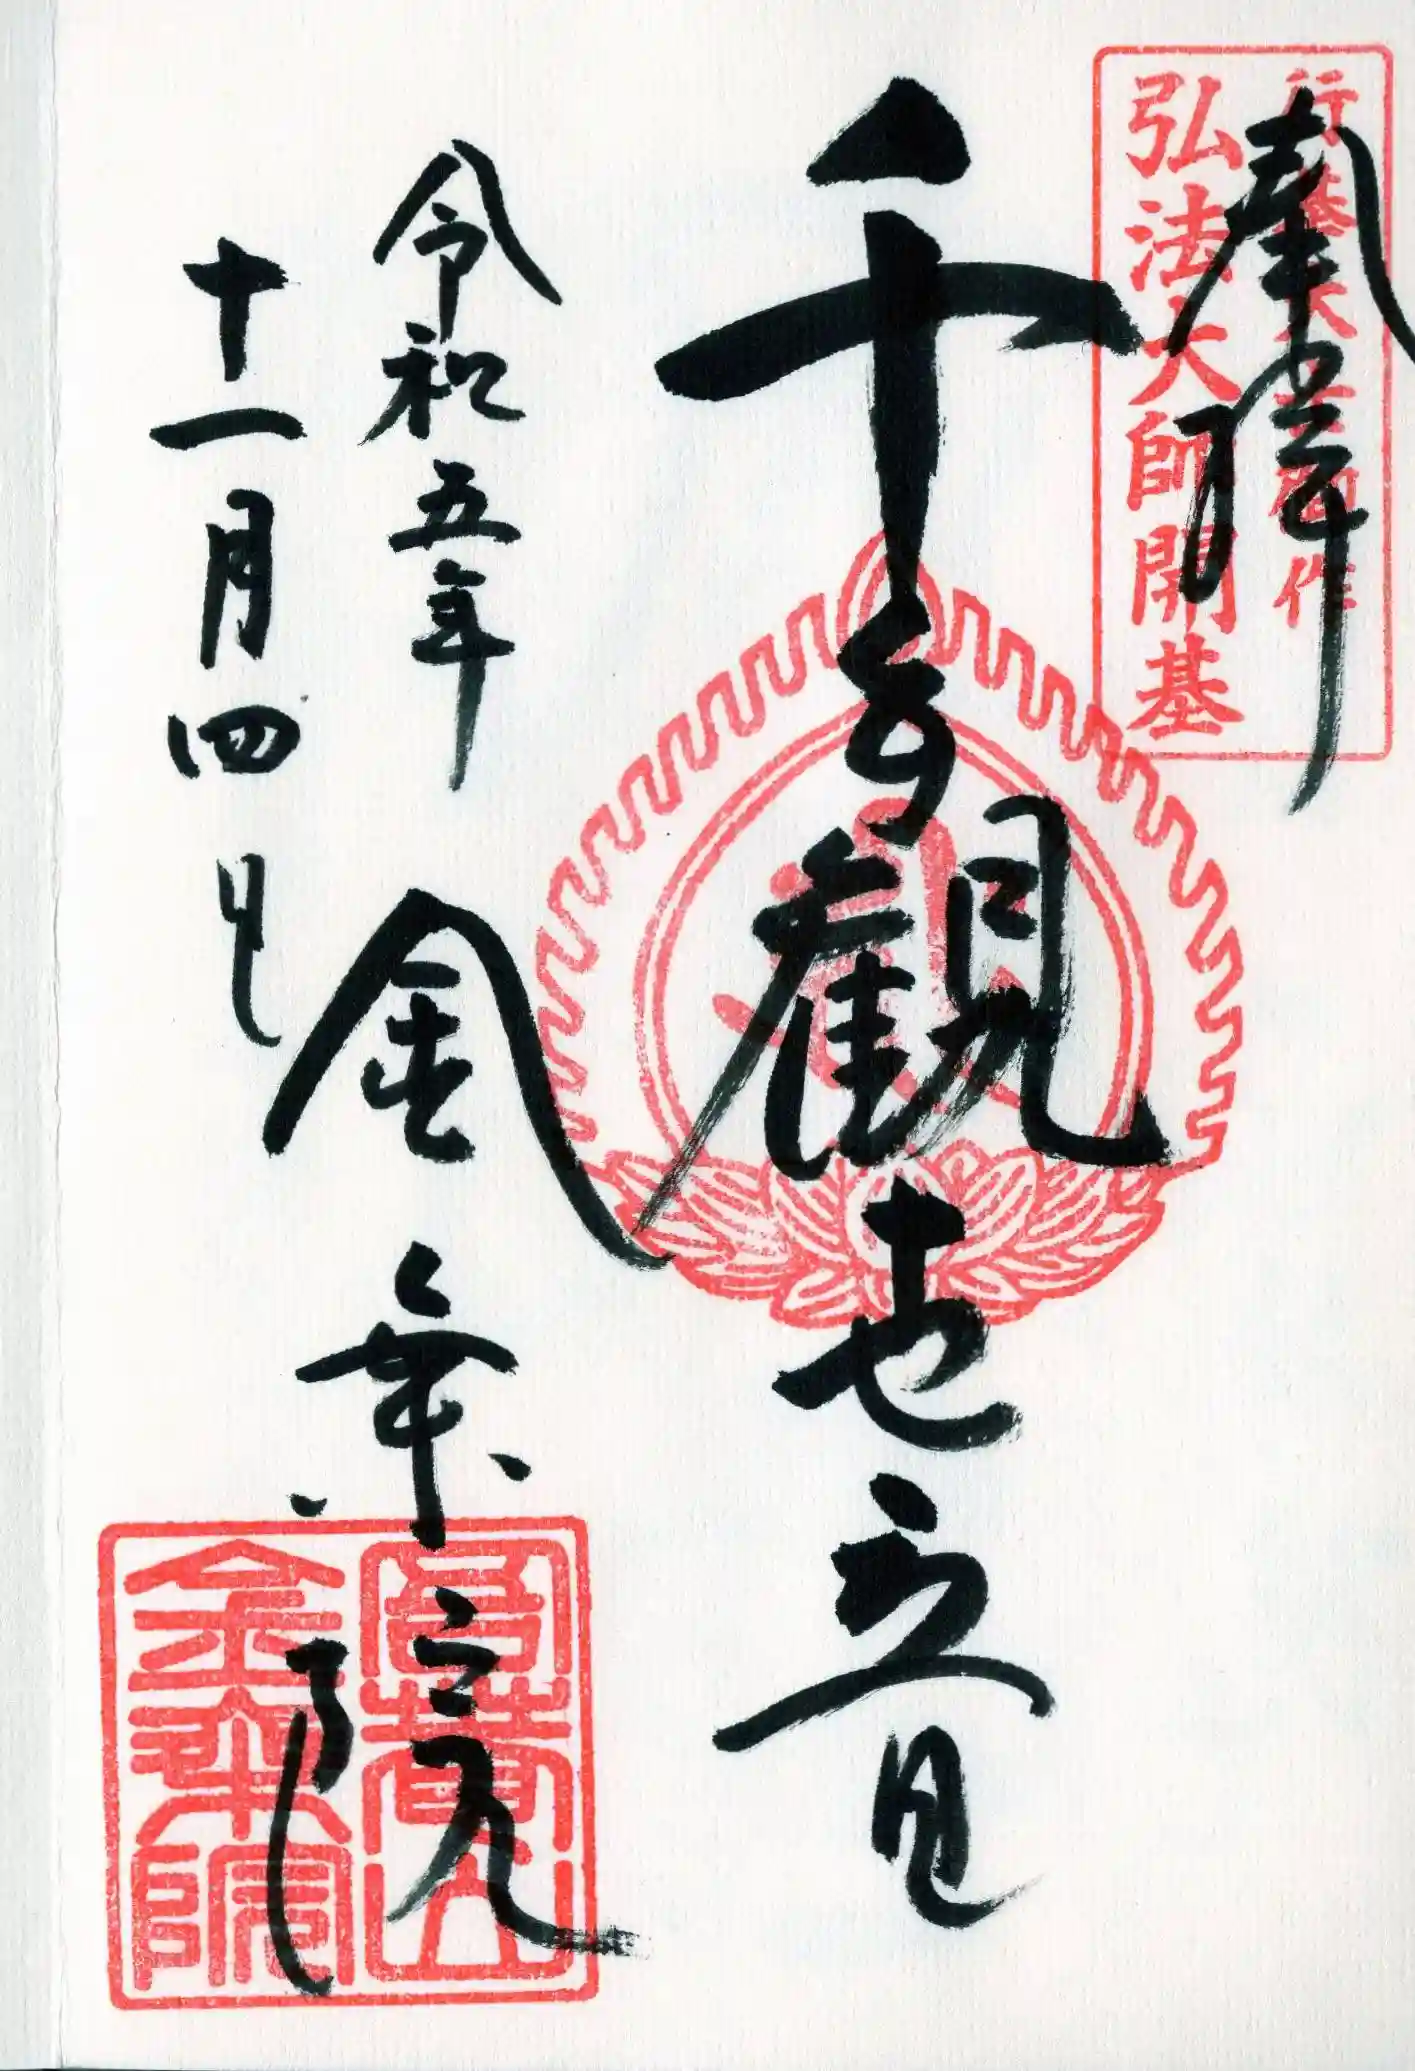 奉拝
行基大士御作
弘法大師開基
千手観世音
令和五年
十一月四日
金乗院
金乗院